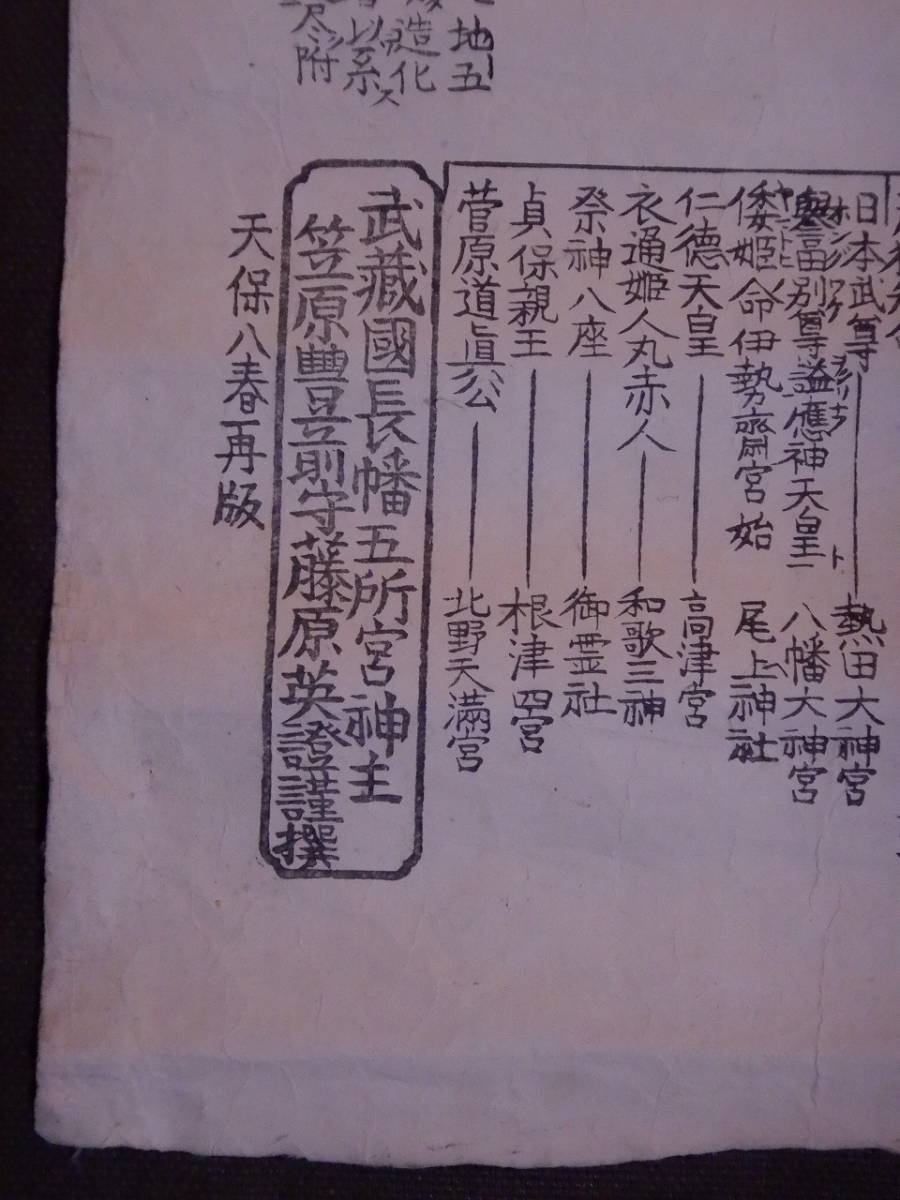 地五
造化
以系ス
尽附
日本武尊―熱田大神宮
譽富別尊謚應神天皇 八幡大神宮
倭姬命伊勢齋宮始 尾上神社
仁德天皇―高津宮
衣通姬人丸赤人―和歌三神
祭神八座―御霊社
貞保親王―根津四宮
菅原道眞公―北野天滿宮
武藏國長幡五所宮神主
笠原豐前守藤原英證謹撰
天保八春再版